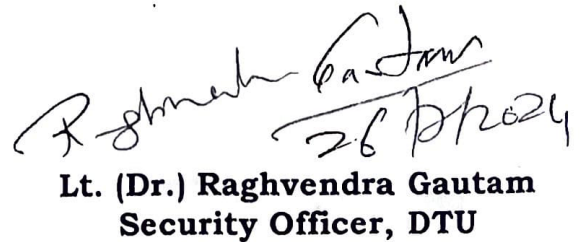 Raghvendra Gautam
Lt. (Dr.) Raghvendra Gautam
Security Officer, DTU